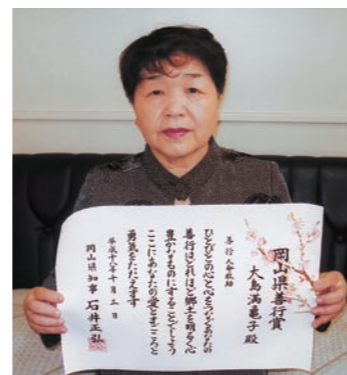 岡山県善行賞
大島満亀子殿
善行 人命救助
ひとびとの心と心をつなぐあなたの
善行はどれほど郷土を明るく心
豊かなものにすることでしょう
ここにあなたの愛とまごころと
勇気をたたえます
平成十八年十月三日
岡山県知事 石井正弘